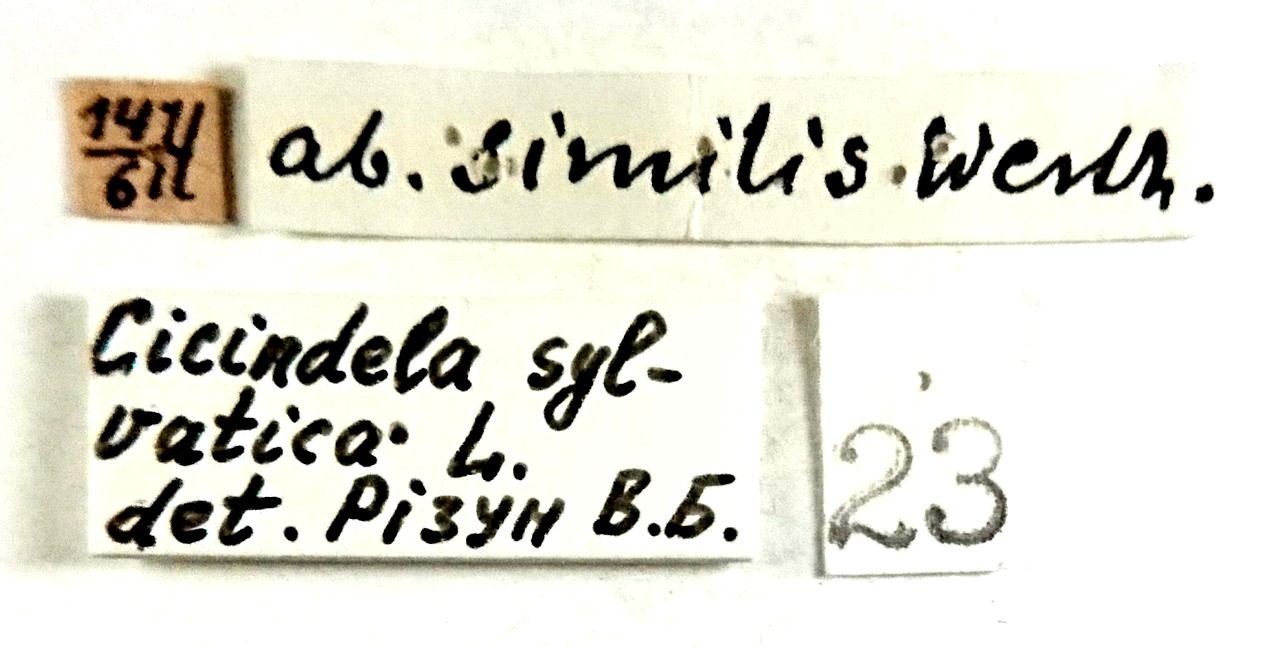 ab. similis Westh.
Cicindela syl-
vatica L.
det. Різун В.Б.
23